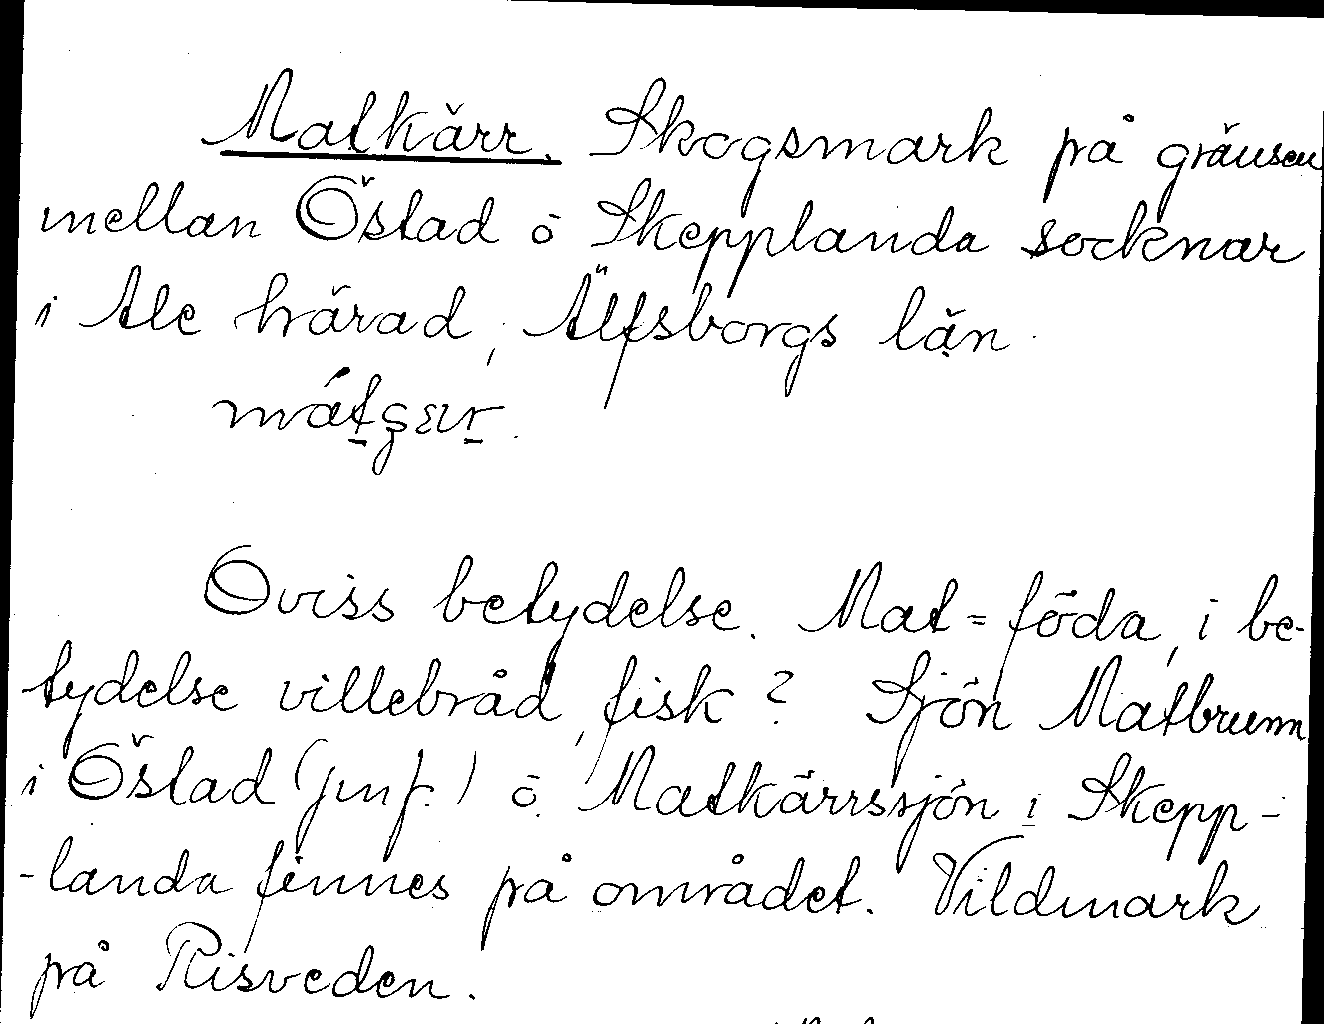 Matkärr. Skogsmark på gränsen
mellan Östad ō Skepplanda socknar
i Ale härad, Älfsborgs län.

Oviss betydelse. Mat = föda, i be-
tydelse villebråd, fisk? Sjön Matbrunn
i Östad (jmf.) ō. Matkärrssjön i Skepp-
-landa finnes på området. Vildmark
på Risveden.